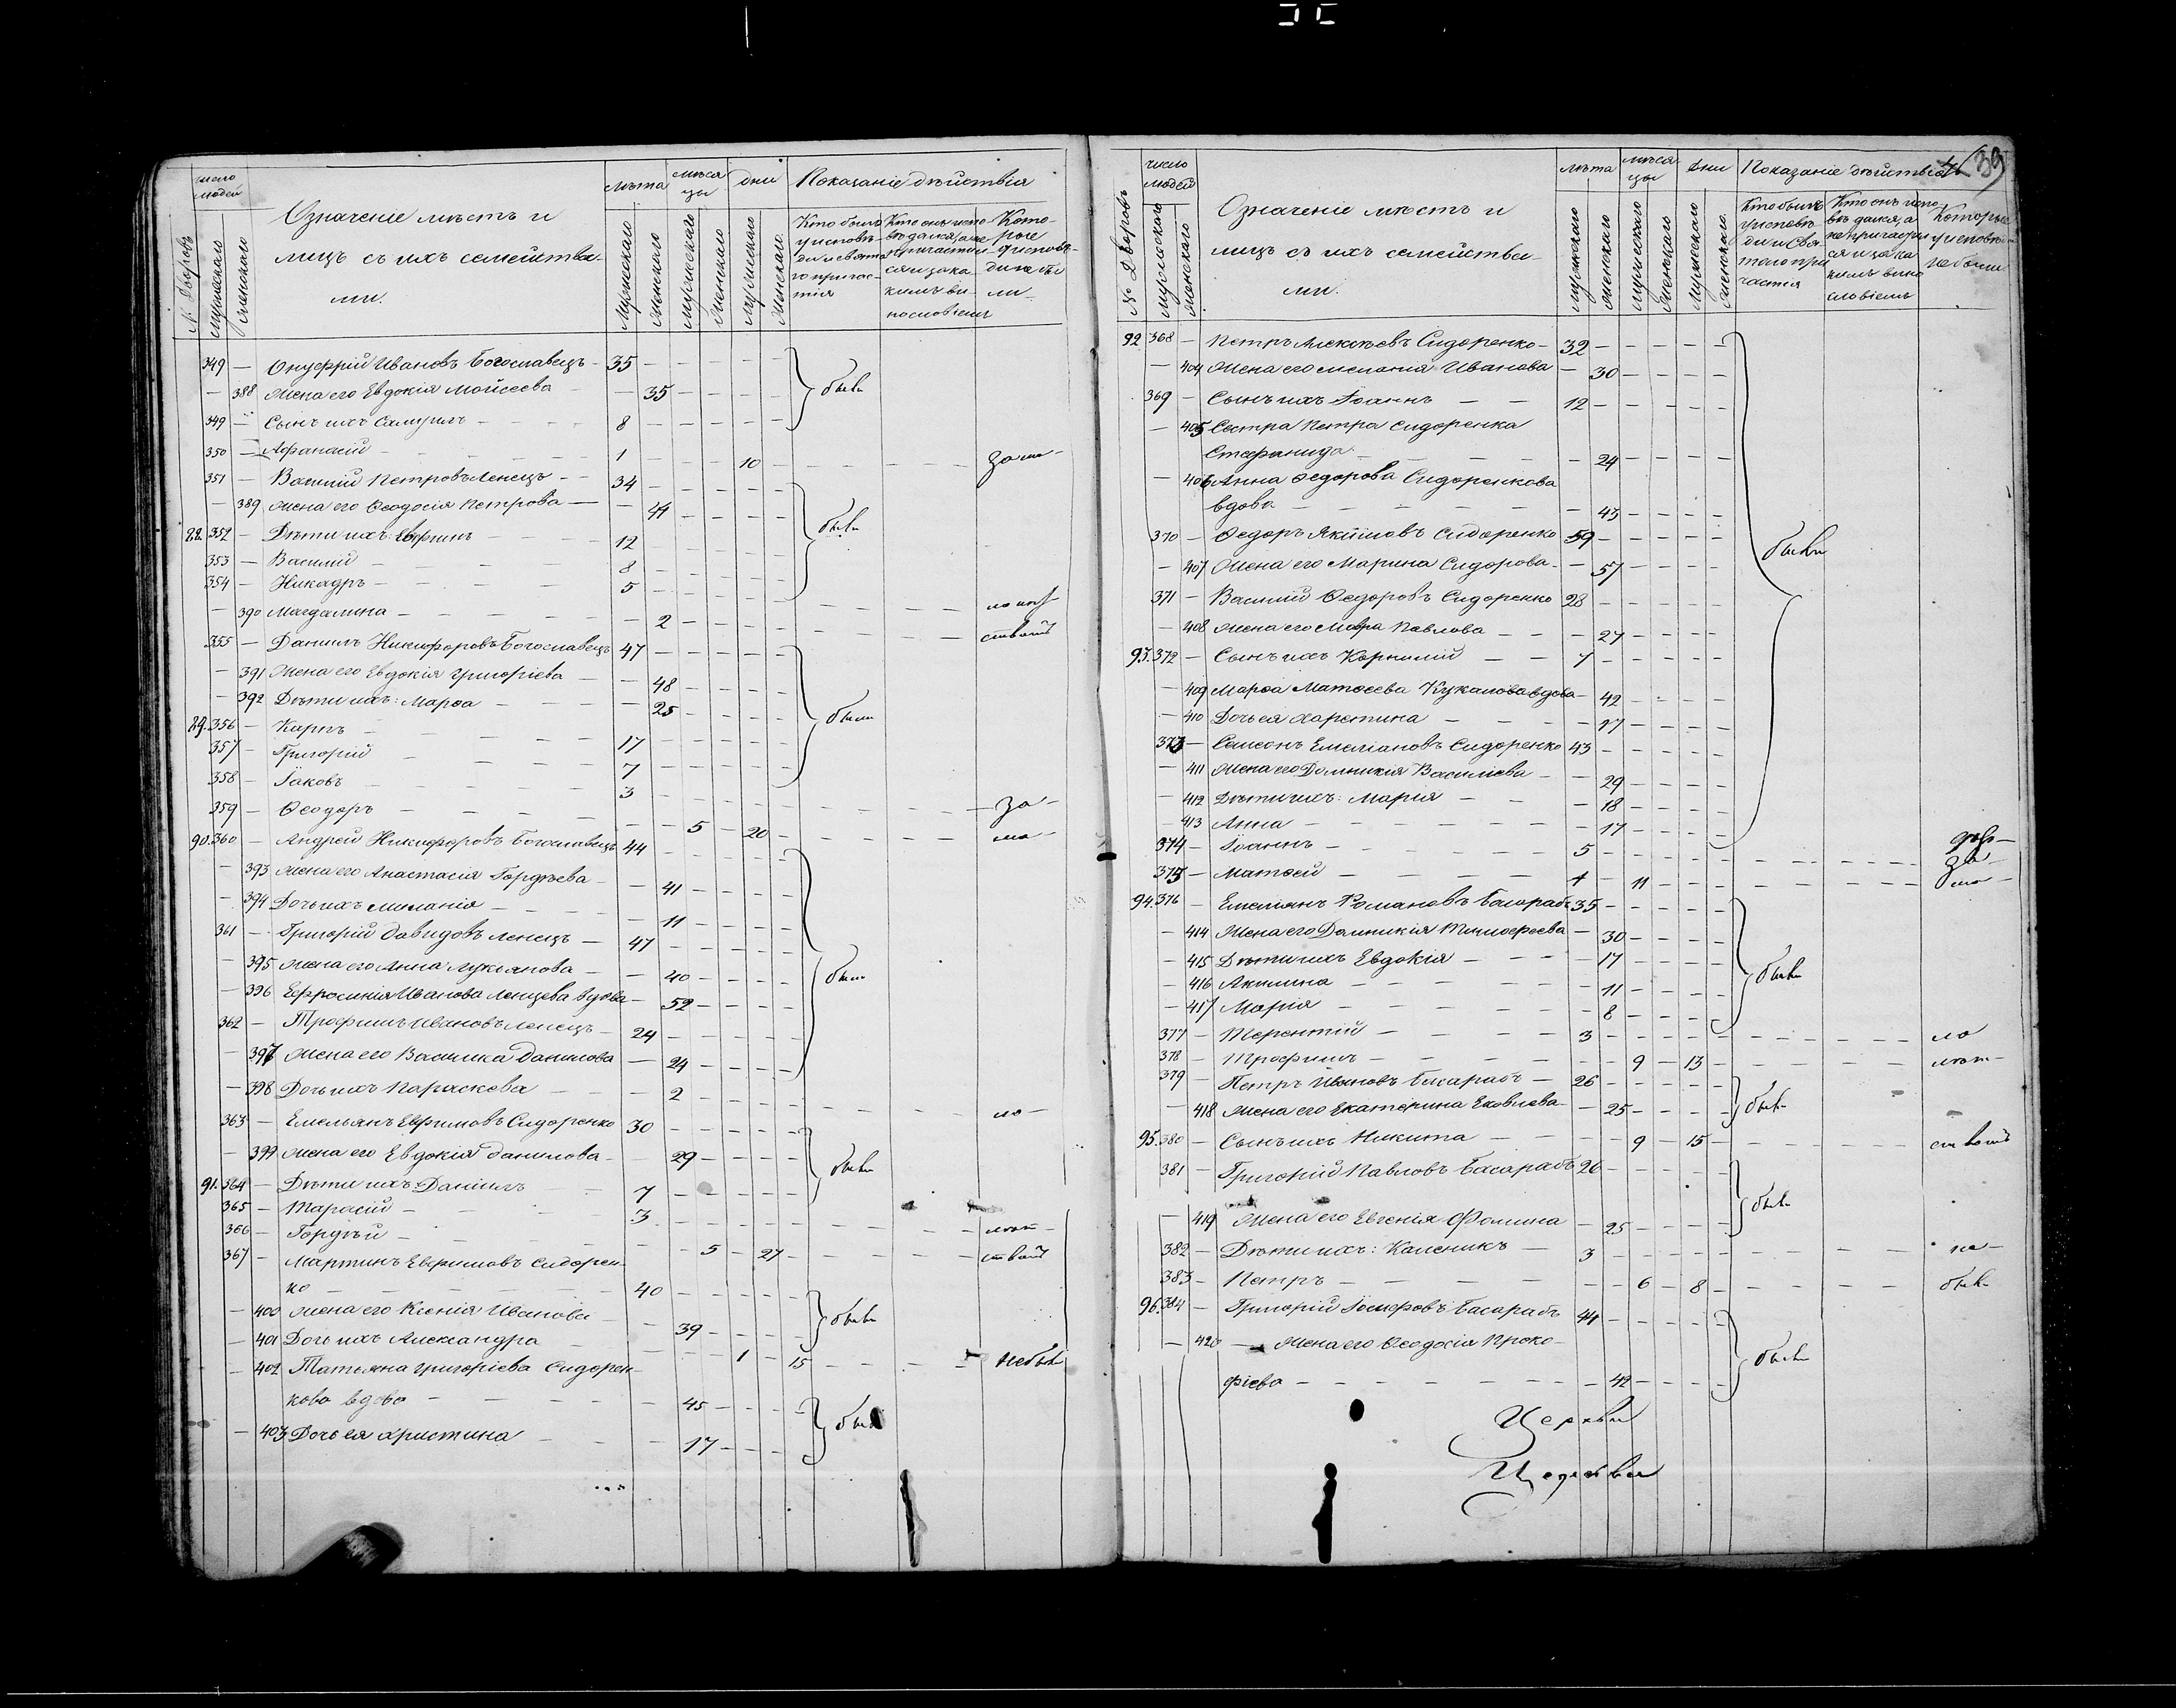 39
№ Дворовъ
число людей
мужескаго
женскаго
Означеніе мѣстъ и
лицъ съ ихъ семейства-
ми.
лѣта
мѣся-
цы
дни
Показаніе дѣйствія
Мужескаго
женскаго
Мужескаго
женскаго
Мужескаго
женскаго
Кто былъ
у исповѣ-
ди и свята-
го причас-
тія
Кто онъ испо-
вѣдался, а не
причастил-
ся и за ка-
кимъ ви-
нословіемъ
Кото-
рые
у исповѣ-
ди не бы-
ли
349 — Онуфрій Ивановъ Богославецъ — 35
— 388 Жена его Евдокія Мойсеева — 35 были
349 — Сынъ ихъ Самуилъ — 8
350 — Афанасій — 1 10 за ма-
351 — Василій Петровъ Ленецъ — 34
— 389 Жена его Ѳеодосія Петрова — 44
352 — Дѣти ихъ: Евфимъ — 12 были
353 — Василій — 8
354 — Никадръ — 5
— 390 Магдалина — 2
355 — Даніилъ Никифоровъ Богославецъ 47 ствомъ
— 391 Жена его Евдокія Григоріева — 48
— 392 Дѣти ихъ: Марѳа — 25 были
89. 356 — Карпъ — 17
357 — Григорій — 7
358 — Іаковъ — 3
359 — Ѳеодоръ — 5 20 за-
90. 360 — Андрей Никифоровъ Богославецъ 44 ма-
— 393 Жена его Анастасія Гордѣева — 41
— 394 Дочь ихъ Меланія — 11
361 — Григорій Давидовъ Ленецъ — 47
— 395 Жена его Анна Лукьянова — 40 были
— 396 Ефросинія Иванова Ленцева вдова — 52
362 — Трофимъ Ивановъ Ленецъ — 24
— 397 Жена его Василика Данилова — 24
— 398 Дочь ихъ Параскева — 2 ло-
363 — Емельянъ Евфимовъ Сидоренко 30
— 399 Жена его Евдокія Данилова — 29 были
91. 364 — Дѣти ихъ: Даніилъ 7
365 — Тарасій — 3 лѣт-
366 — Гордѣй — 5 27 ствомъ
367 — Мартинъ Евфимовъ Сидорен-
ко — 40
— 400 Жена его Ксенія Иванова — 39 были
— 401 Дочь ихъ Александра 1 15 не были
— 402 Татьяна Григоріева Сидорен-
кова вдова — 45 были
— 403 Дочь ея Христина 17
№ Дворовъ
число
людей
мужескаго
женскаго
Означеніе мѣстъ и
лицъ съ ихъ семейства-
ми.
лѣта
мѣся-
цы
дни
Показаніе дѣйствія
мужескаго
женскаго
мужескаго
женскаго
мужескаго
женскаго
Кто былъ
у исповѣ-
ди и Свя-
таго при-
частія
Кто онъ испо-
вѣдался, а
не причастил-
ся и за ка-
кимъ вино-
словіемъ
Которые
у исповѣди
не были
92. 368 — Петръ Алексѣевъ Сидоренко — 32
— 404 Жена его Меланія Иванова — 30
369 — Сынъ ихъ Іоаннъ — 12
— 405 Сестра Петра Сидоренка
Стефанида — 24
— 406 Анна Ѳедорова Сидоренкова
вдова — 43
370 — Ѳедоръ Якимовъ Сидоренко 59 были
— 407 Жена его Марина Сидорова — 57
371 — Василій Ѳедоровъ Сидоренко 28
— 408 Жена его Мавра Павлова — 27
93. 372 — Сынъ ихъ Корнилій — 7
— 409 Марѳа Матѳеева Кукалова вдова — 42
— 410 Дочь ея Харетина — 17
373 — Самсонъ Емеліановъ Сидоренко 43
— 411 Жена его Домникія Василіева — 29
— 412 Дѣти ихъ: Марія — 18
— 413 Анна — 17
374 — Іоаннъ — 5
375 — Матѳей — 1 11 за-
94. 376 — Емеліянъ Романовъ Басарабъ 35 мо-
— 414 Жена его Домникія Тимофеева — 30
— 415 Дѣти ихъ Евдокія — 17
— 416 Акилина — 11 были
— 417 Марія — 8
377 — Терентій — 3 ло
378 — Трофимъ — 9 13 лѣт-
379 — Петръ Ивановъ Басарабъ — 26
— 418 Жена его Екатерина Яковлева — 25 были
95. 380 — Сынъ ихъ Никита — 9 15 ствомъ
381 — Григорій Павловъ Басарабъ 26
— 419 Жена его Евгенія Фомина — 25 были
382 — Дѣти ихъ: Каленикъ — 3 не-
383 — Петръ — 6 8 были
96. 384 — Григорій Іосифовъ Басарабъ 44
— 420 — Жена его Ѳеодосія Проко-
фіева — 42 были
Церкви